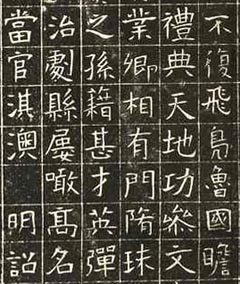 不復飛鳧魯國瞻
禮典天地功叅文
業卿相有門隋珠
之孫籍甚才英彈
治劇縣屢噉髙名
當官淇澳 明詔